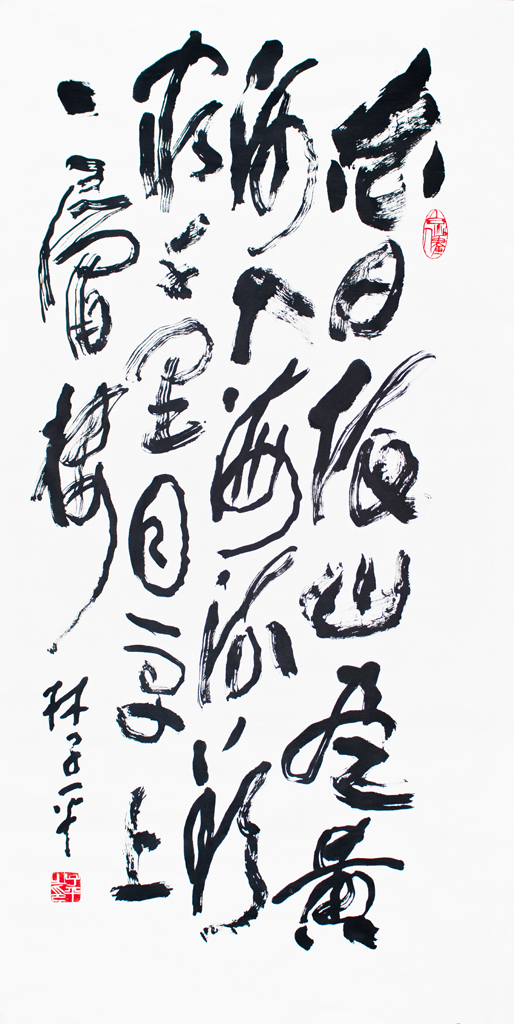 白日依山尽黄
河入海流欲
窮千里目更上
一層樓
林子平